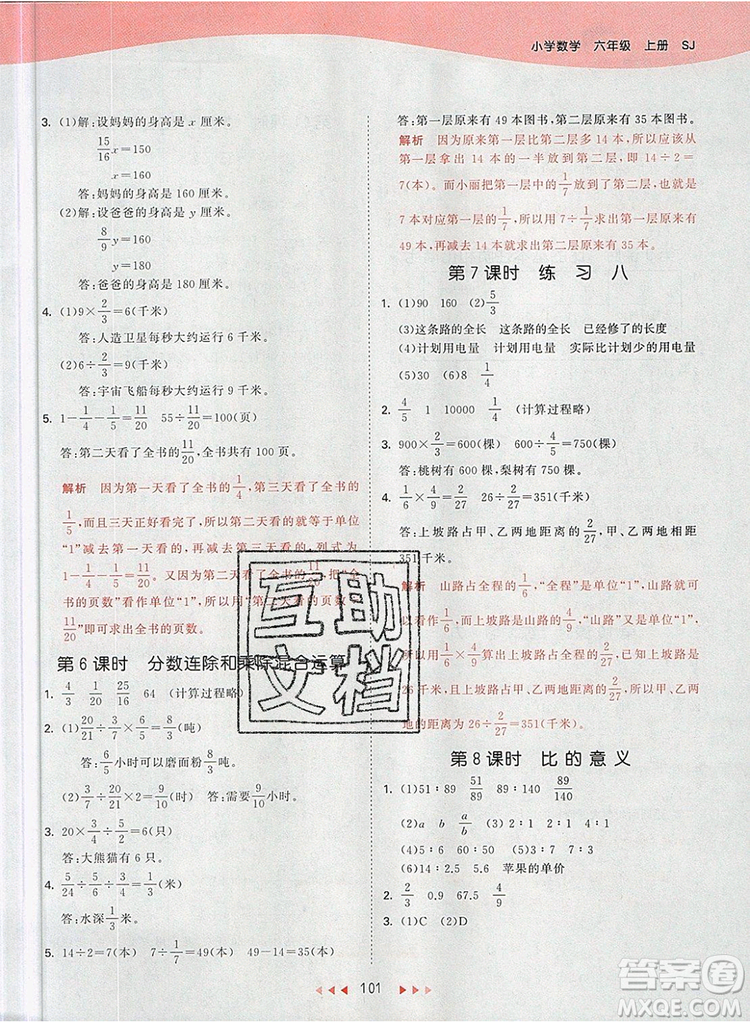 小学数学 六年级 上册 SJ
3. (1)解:设妈妈的身高是 x 厘米。
15/16 x=150
x=160
答:妈妈的身高是 160 厘米。
(2)解:设爸爸的身高是 y 厘米。
8/9 y=160
y=180
答:爸爸的身高是 180 厘米。
4. (1)9×2/3=6(千米)
答:人造卫星每秒大约运行 6 千米。
(2)6÷2/3=9(千米)
答:宇宙飞船每秒大约运行 9 千米。
5. 1-1/4-1/5=11/20 55÷11/20=100(页)
答:第二天看了全书的11/20,全书共有 100 页。
解析 因为第一天看了全书的1/4,第三天看了全书的
1/5,而且三天正好看完了,所以看的天数就等于单位
“1”减去第一天看的,再减去第三天看的,列式为
1-1/4-1/5=11/20。又因为第二天看了全书的11/20,把“全
书的页数”看作单位“1”,所以用“第二天看的页数÷
11/20”即可求出全书的页数。
第 6 课时 分数连除和乘除混合运算
1. 4/3 1/10 25/16 64 (计算过程略)
2. (1)20/21÷7/10×5/8=6/5(吨)
答:6/5小时可以磨面粉9/10吨。
(2)
答:需要9/10小时。
3. 20×3/4÷5/2=6(只)
答:大熊猫有 6 只。
4. 
答:水深1/3米。
5. 14÷2=7(本) 7÷1/7=49(本) 49-14=35(本)
答:第一层原来有 49 本图书,第二层原来有 35 本图书。
解析 因为原来第一层比第二层多 14 本,所以应该从
第一层拿出 14 本的一半放到第二层,即 14÷2=
7(本)。而小丽把第一层中的1/7放到了第二层,所以
7 本对应第一层的1/7,所以用 7÷1/7求出第一层原来有
49 本,再减去 14 本就求出第二层原来有 35 本。
第 7 课时 练 习 八
1. (1)90 160 (2)5/3
(3)这条路的全长 这条路的全长 已经修了的长度
(4)计划用电量 计划用电量 实际比计划少的用电量
(5)30 (6)8 1/4
2. 4/5 1 10000 1/4 (计算过程略)
3. 900×2/3=600(棵) 600÷3/4=800(棵)
答:桃树有 600 棵,梨树有 800 棵。
4. 1/6×4/9=2/27 26÷2/27=351(千米)
答:上坡路占甲、乙两地距离的2/27,甲、乙两地相距
351千米。
解析 山路占全程的1/6,“全程”是单位“1”,山路就可
以看作1/6,而上坡路是山路的4/9,“山路”又是单位“1”,
所以用1/6×4/9=2/27,求出上坡路占甲、乙两地距离的
2/27,上坡路是 26 千米,占甲、乙两地距离的2/27,甲、乙两
地的距离为 26÷2/27=351(千米)。
第 8 课时 比 的 意 义
1. (1)51∶89 51/89 89∶140 89/140
(2)a b a/b (3)2∶1 (4)1∶1
(5)4060∶5 812
(6)14∶2.5 5.6 苹果的单价
2. 2/3 0.9 67.5 4/9
3. (1)C (2)D
101
互助
文档
答案圈
MXQE.COM